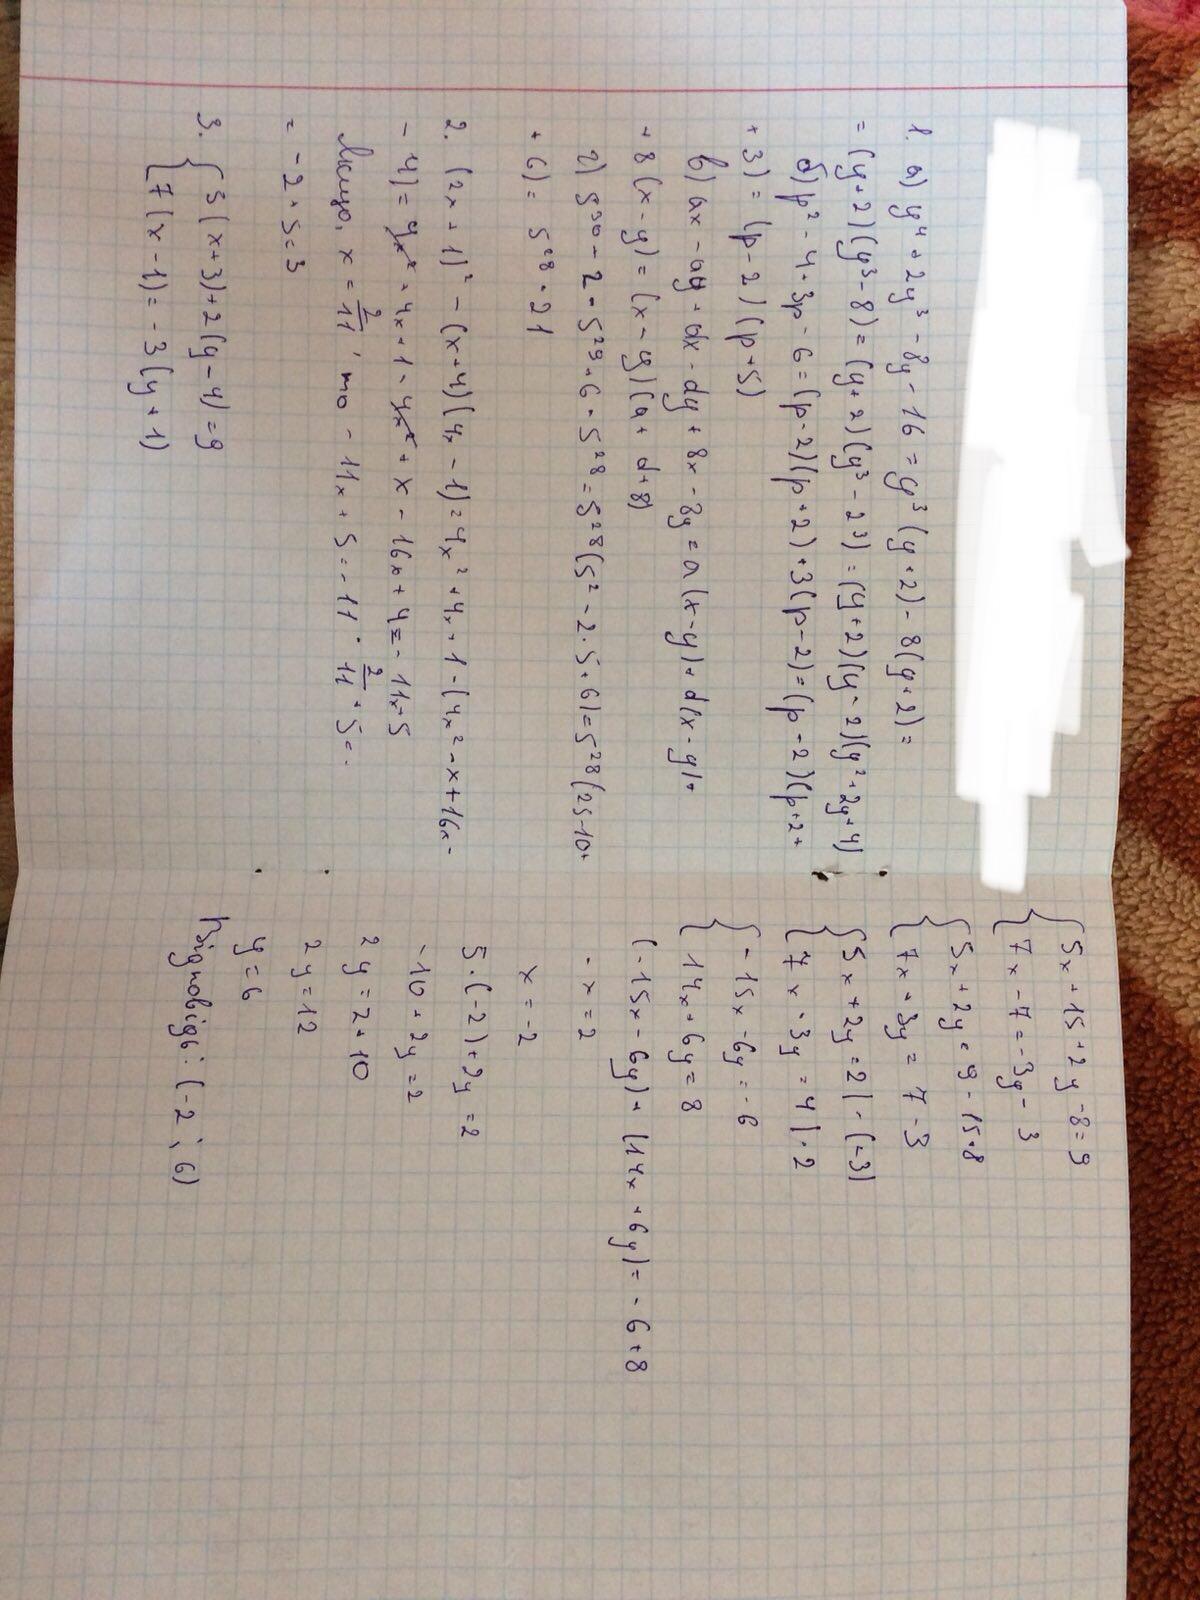 1. а) y⁴ + 2y³ - 8y - 16 = y³(y+2) - 8(y+2) =
= (y+2)(y³-8) = (y+2)(y³-2³) = (y+2)(y-2)(y²+2y+4)
б) p² - 4 + 3p - 6 = (p-2)(p+2) + 3(p-2) = (p-2)(p+2+
+3) = (p-2)(p+5)
в) ax - ay + dx - dy + 8x - 8y = a(x-y) + d(x-y) +
+ 8(x-y) = (x-y)(a+d+8)
г) 5³⁰ - 2·5²⁹ + 6·5²⁸ = 5²⁸(5² - 2·5 + 6) = 5²⁸(25-10+
+6) = 5²⁸·21
2. (2x+1)² - (x+4)(4x-1) = 4x² + 4x + 1 - (4x² - x + 16x -
- 4) = 4x² + 4x + 1 - 4x² + x - 16x + 4 = - 11x + 5
Якщо, x = 2/11, то - 11x + 5 = - 11 · 2/11 + 5 =
= - 2 + 5 = 3
3. { 3(x+3)+2(y-4)=9
{ 7(x-1) = -3(y+1)
{ 5x+15+2y-8=9
{ 7x-7=-3y-3
{ 5x+2y=9-15+8
{ 7x+3y=7-3
{ 5x+2y=2|·(-3)
{ 7x+3y=4|·2
{ -15x-6y=-6
{ 14x+6y=8
(-15x-6y)+(14x+6y)=-6+8
-x=2
x=-2
5·(-2)+2y=2
-10+2y=2
2y=2+10
2y=12
y=6
Відповідь: (-2; 6)